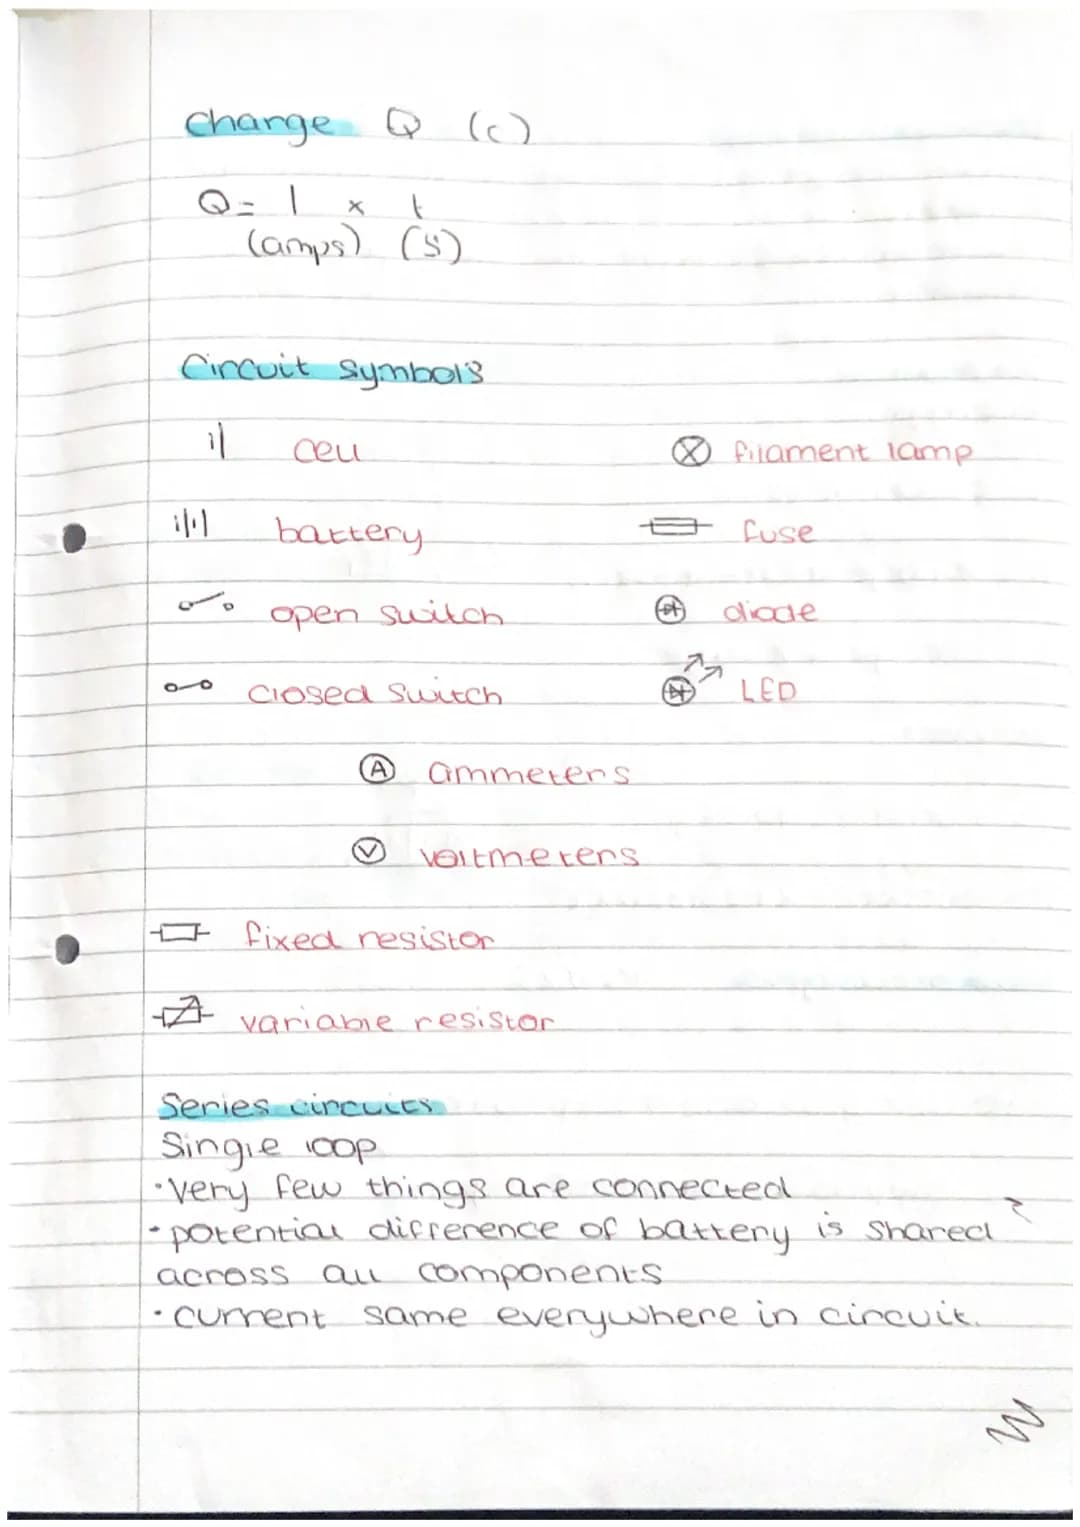 Charge Q (C)
Q = I x t
(amps) (s)
Circuit symbols
cell
filament lamp
battery
fuse
open switch
diode
closed switch
LED
A ammeters
V voltmeters
fixed resistor
variable resistor
Series circuits
Single loop
·very few things are connected
·potential difference of battery is shared
across all components
·current same everywhere in circuit.